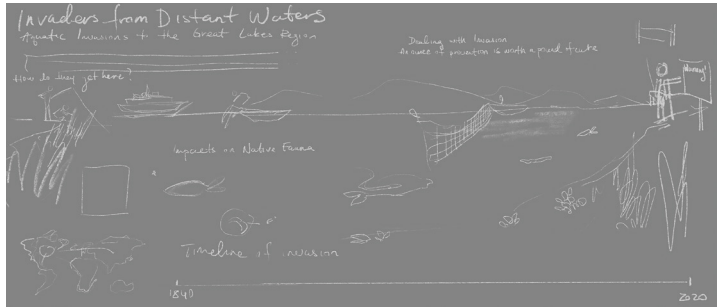 Invaders from Distant Waters
Aquatic Invasions + the Great Lakes Region
Dealing with Invasion
An ounce of prevention is worth a pound of cure
How do they get here?
Impacts on Native Fauna
Timeline of invasion
1840
2020